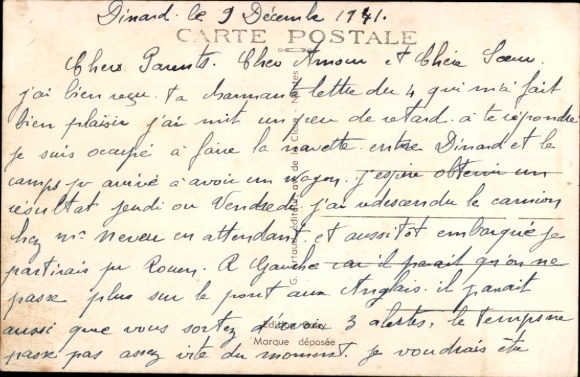 Dinard. le 9 Décembre 1941.
CARTE POSTALE
Chers Parents. Cher Amour et Chère Sœur.
j'ai bien reçu. ta charmante lettre du 4 qui m'a fait
bien plaisir j'ai mit un peu de retard. a te répondre.
je suis occupé à faire la navette. entre Dinard et le
camps pr arrivé à avoir un wagon. j'espère obtenir un
résultat jeudi ou Vendredi j'ai redescendu le camion
chez Mr Neveu en attendant et aussitôt embarqué je
partirais pr Rouen. R Gauche car il parait qu'on ne
passe plus sur le pont aux Anglais. il parait
aussi que vous sortez d'avoir 3 alertes, le temps ne
passe pas assez vite du moment. je voudrais être
G. Artaud, éditeur, de la Clo Nantes
Édition
Marque déposée